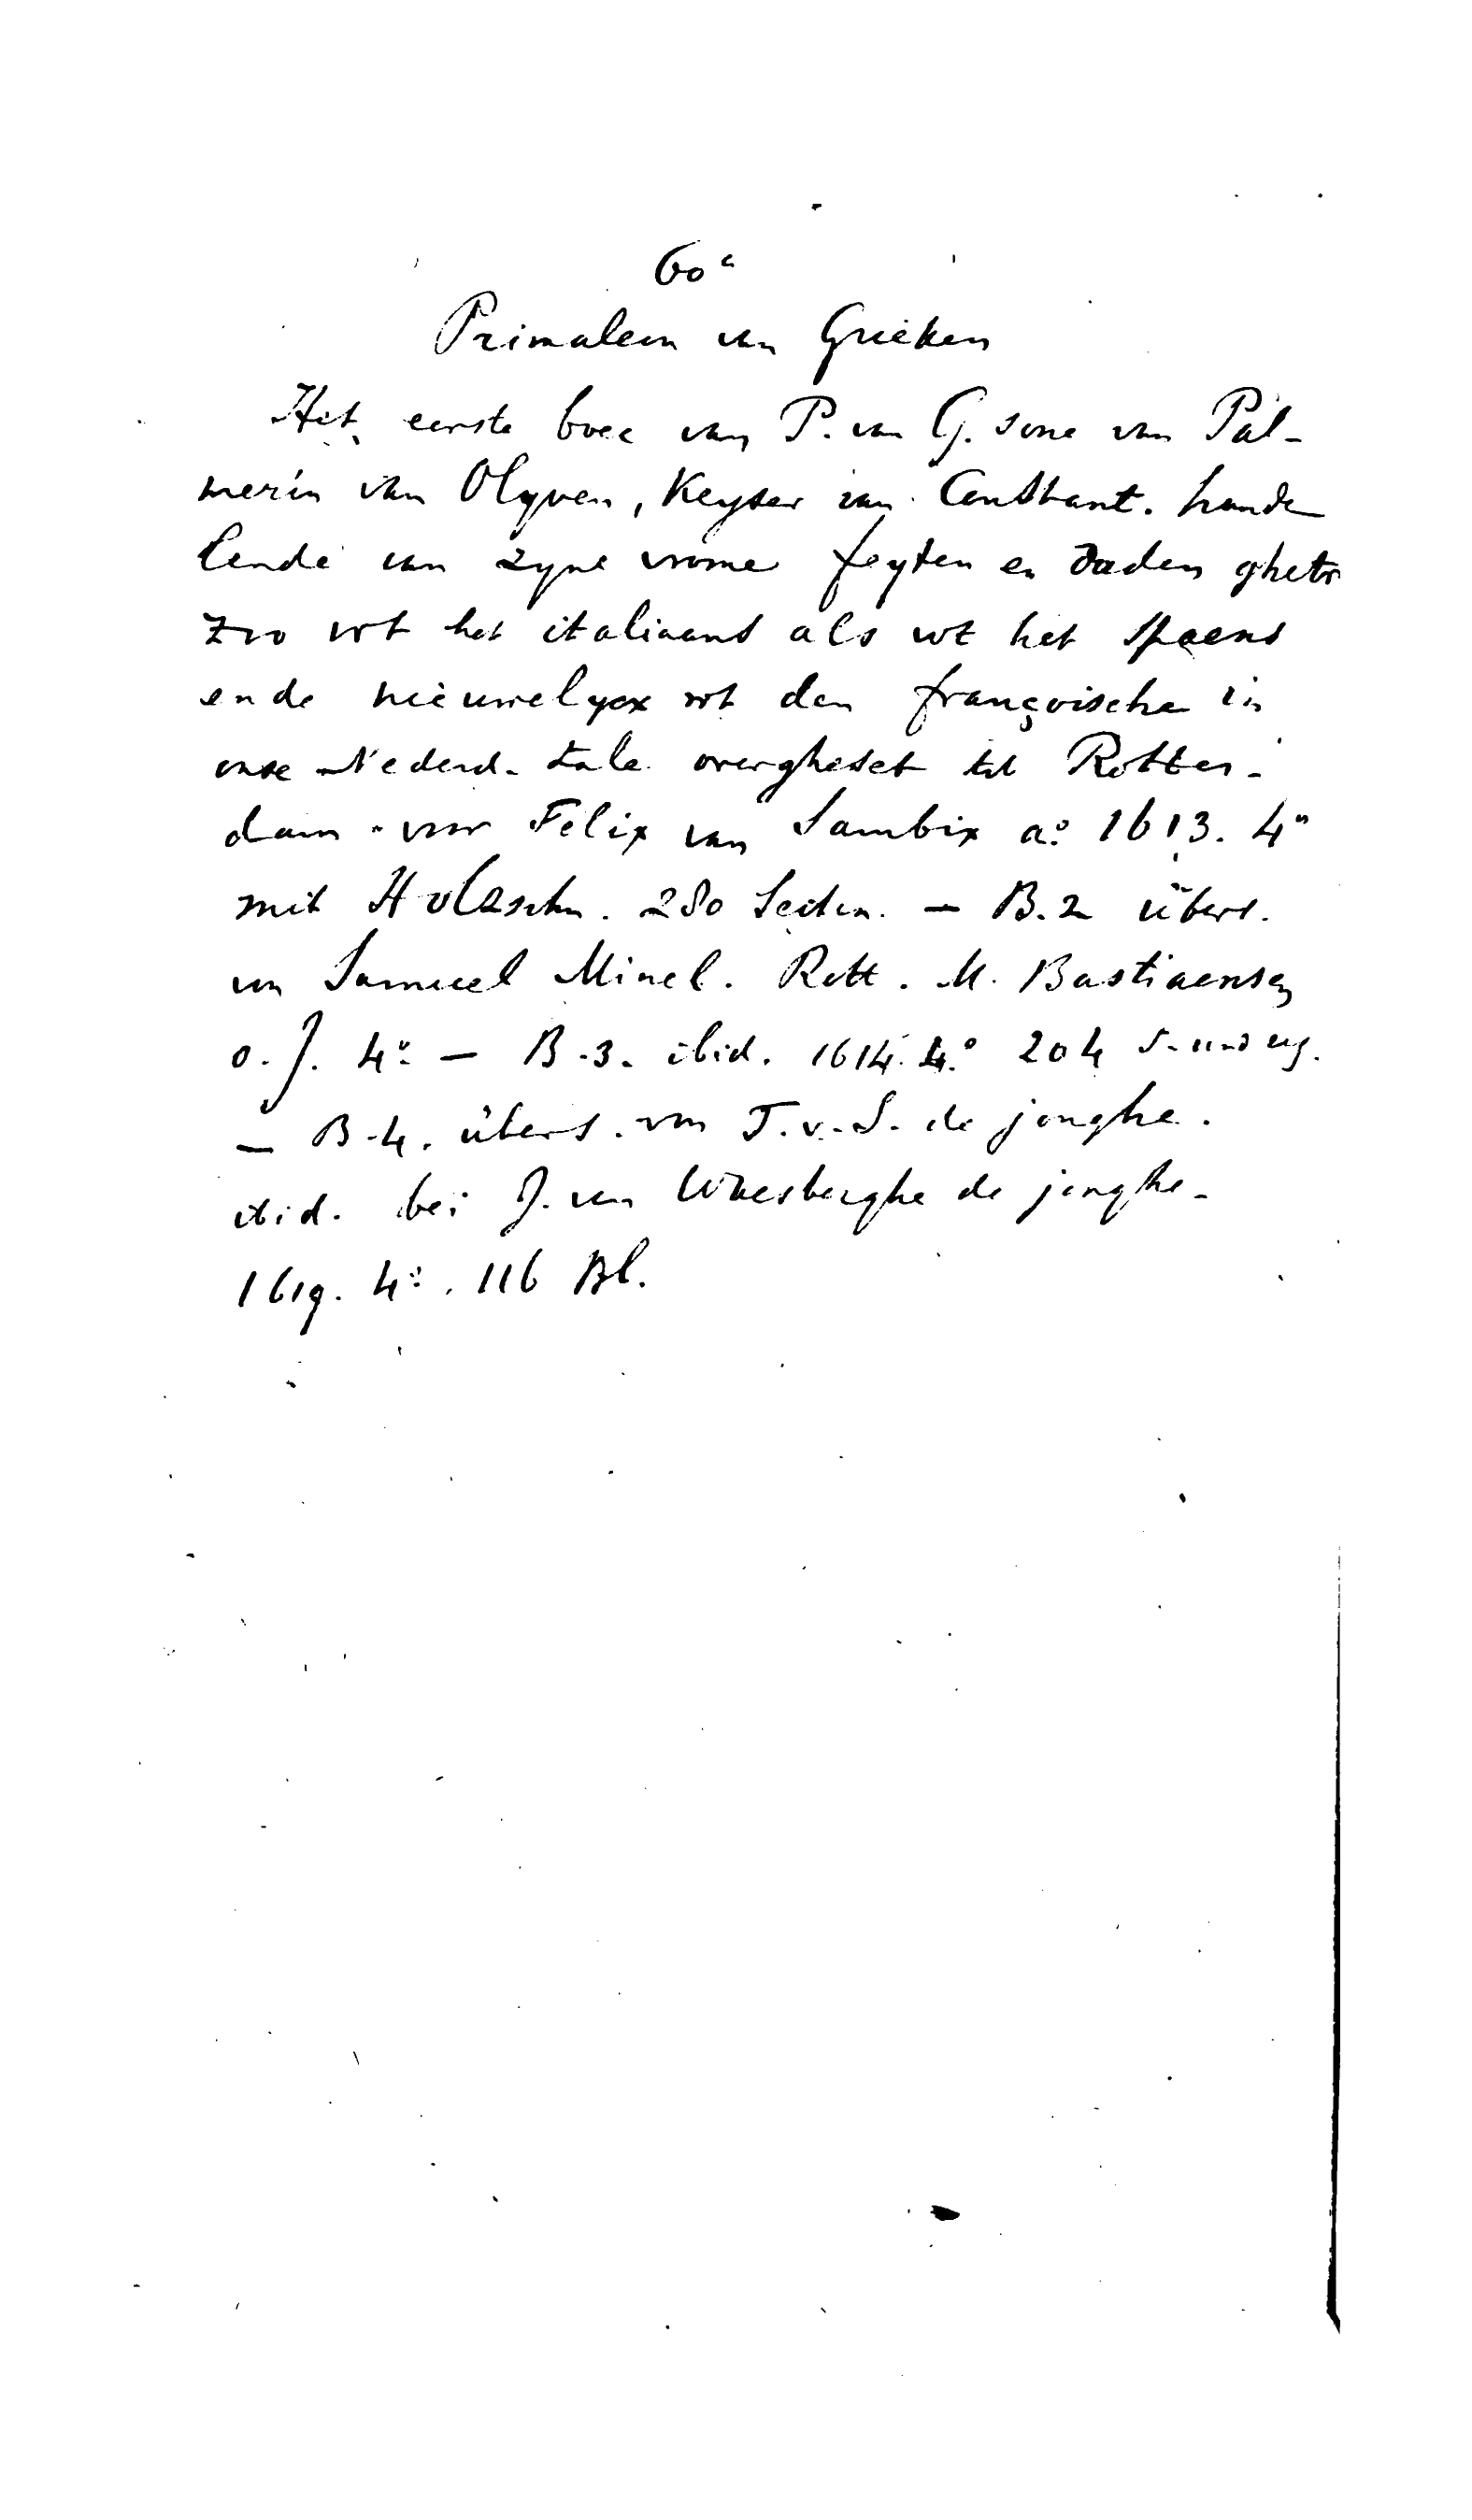 60a
Primaleon van Grieken
Het eerste boec van P. van G. sone van Pal-
merin van Olyven, Keyser van Constant. hande
lende van zyne vrome feyten en daden ghetr
zoo wt het italiaens als wt het spaens
ende nieuwelycx wt den françoische in
onse Nederd. tale overgheset tot Rotter-
dam voor Felix van Sambix ao 1613. 4o
mit Holzschn. 280 Seiten. — B. 2 übers.
von Samuel Minel. Rott. M. Bastiaensen
o. J. 4o — B. 3. ibid. 1614. 4o 204 S.
— B. 4. übers. von J. v. S. de jonghe.
ibid. bei J. van Waesberghe de jonghe.
1619. 4o. 116 Bl.